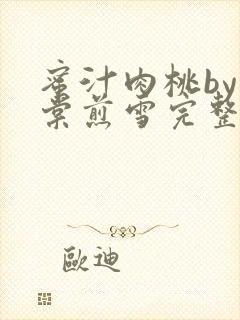 蜜汁肉桃by
棠煎雪完整
歐迪